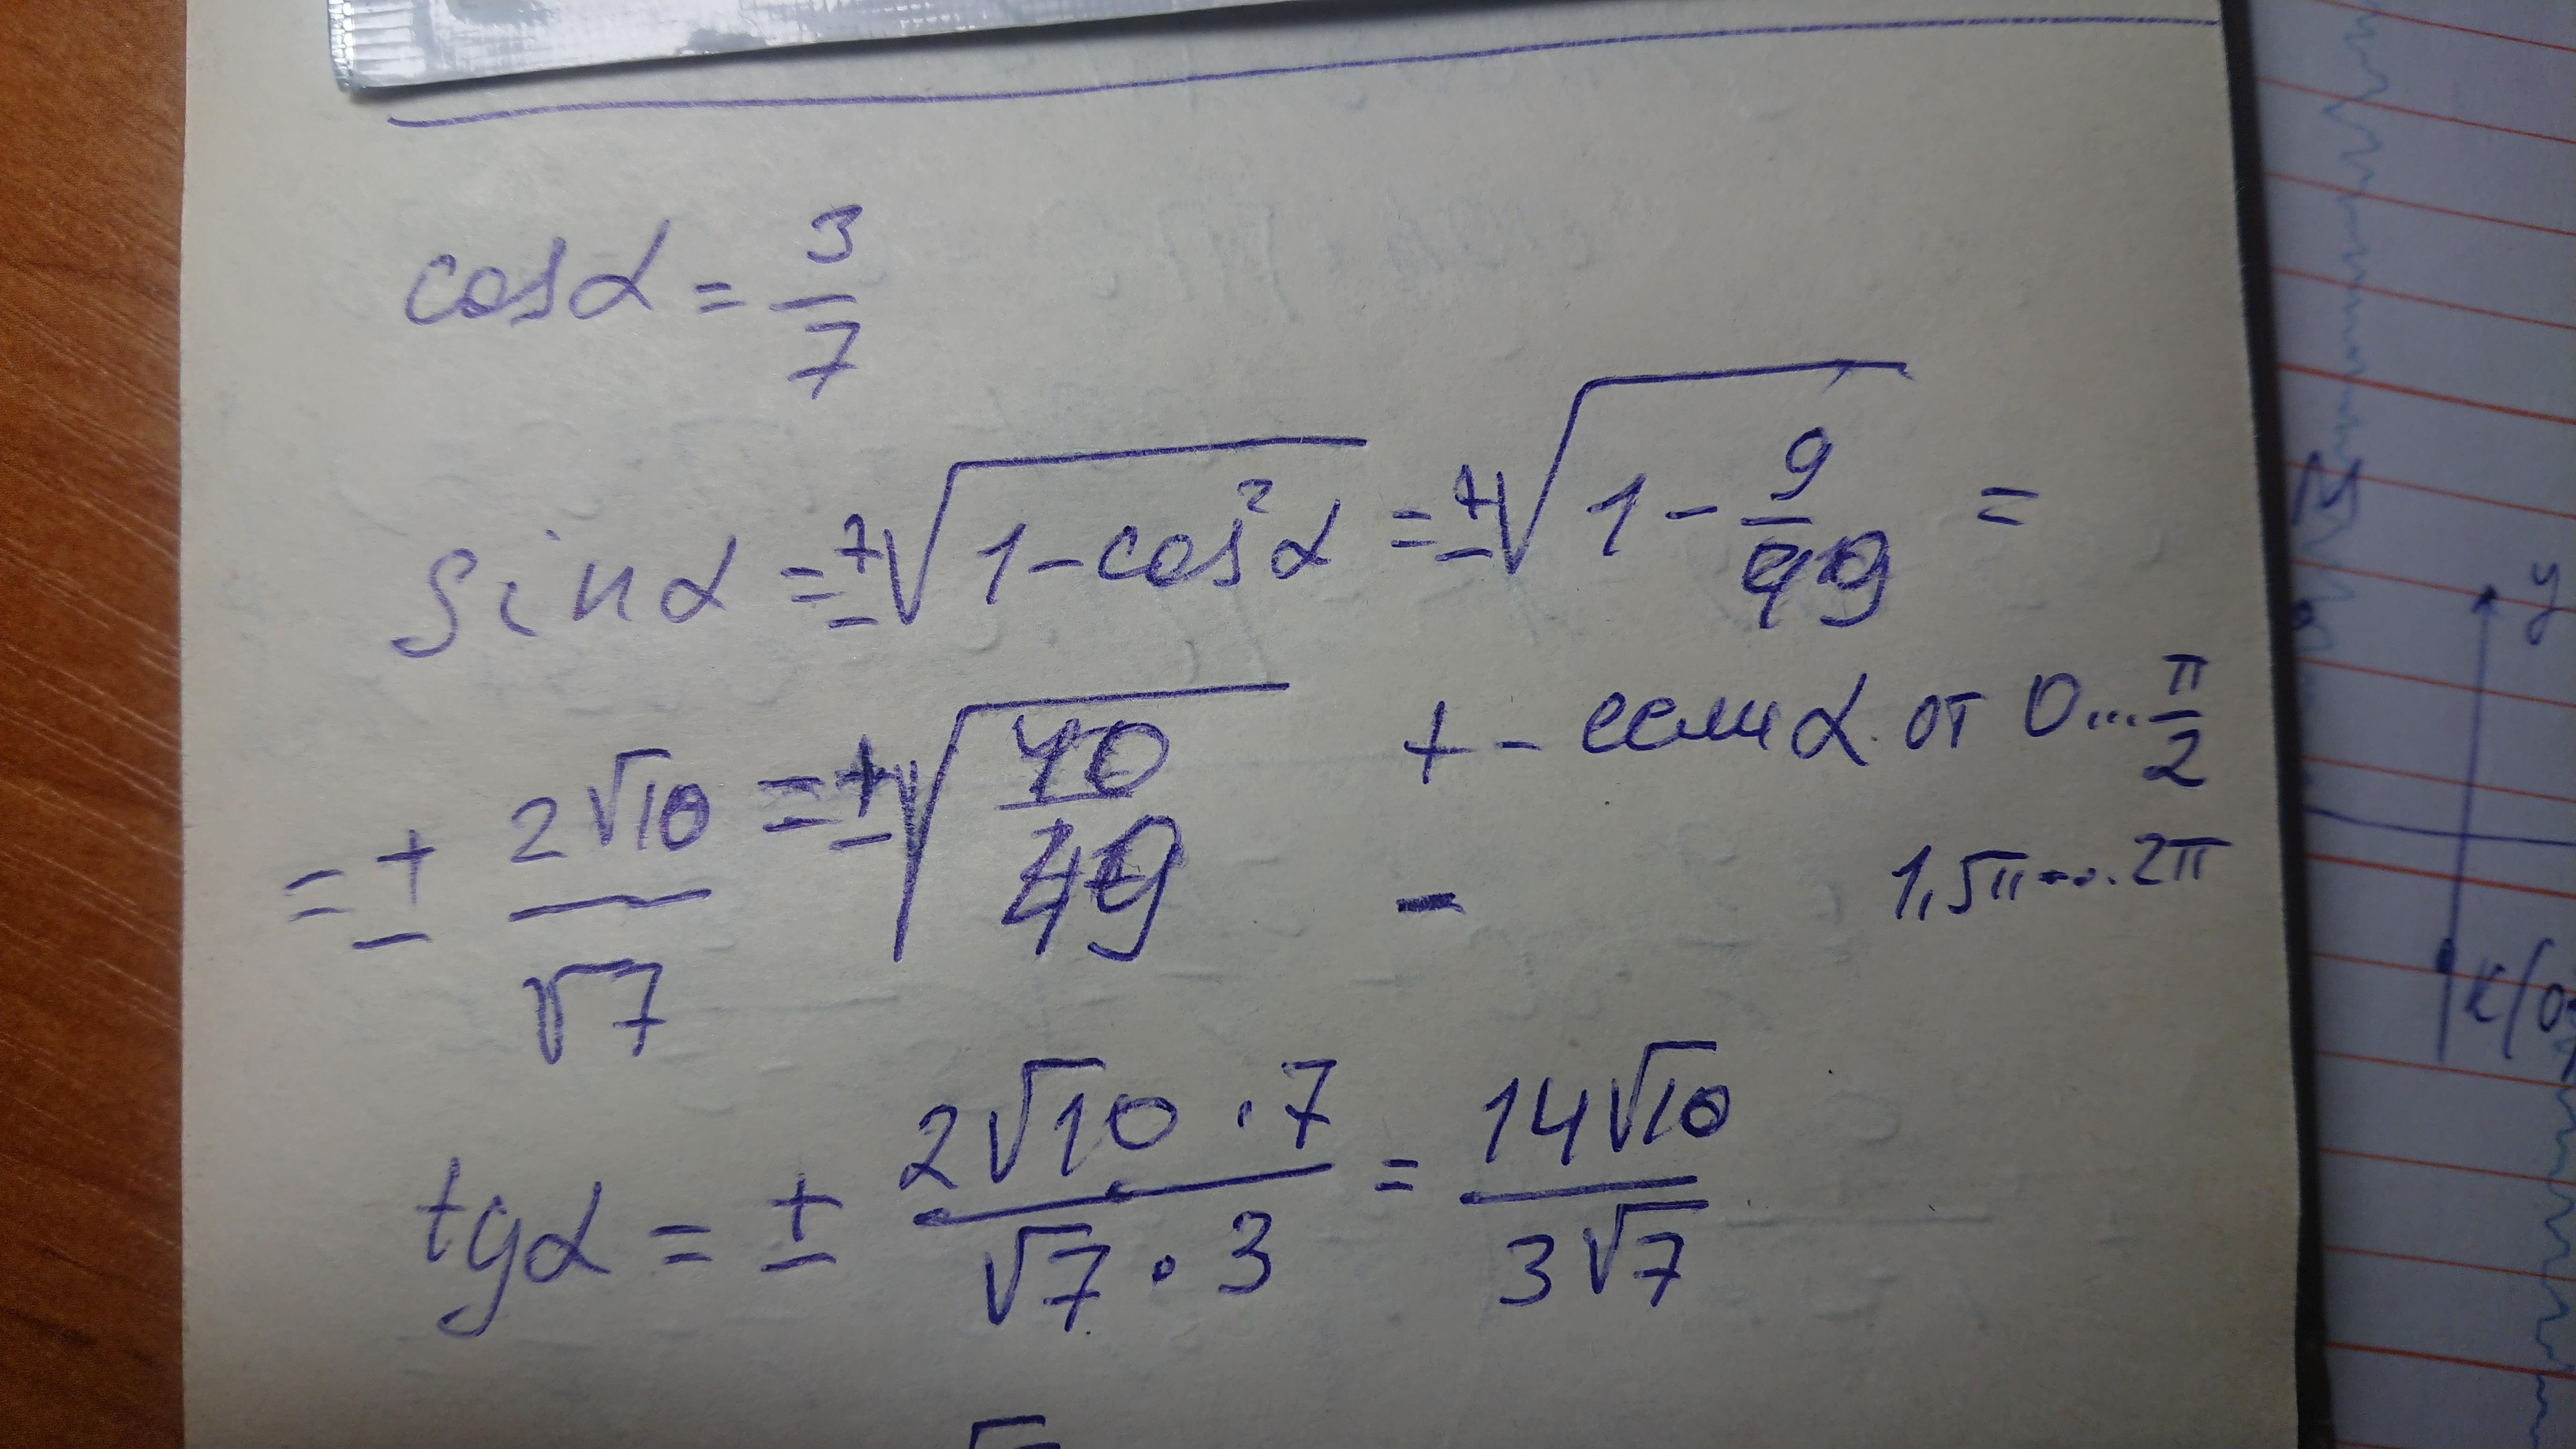 cosα = 3/7
sinα = ±√(1-cos²α) = ±√(1 - 9/49) =
= ± 2√10/√7 = ±√(40/49)
+ - если α от 0...π/2
- 1,5π...2π
tgα = ± 2√10 · 7/√7 · 3 = 14√10/3√7
y